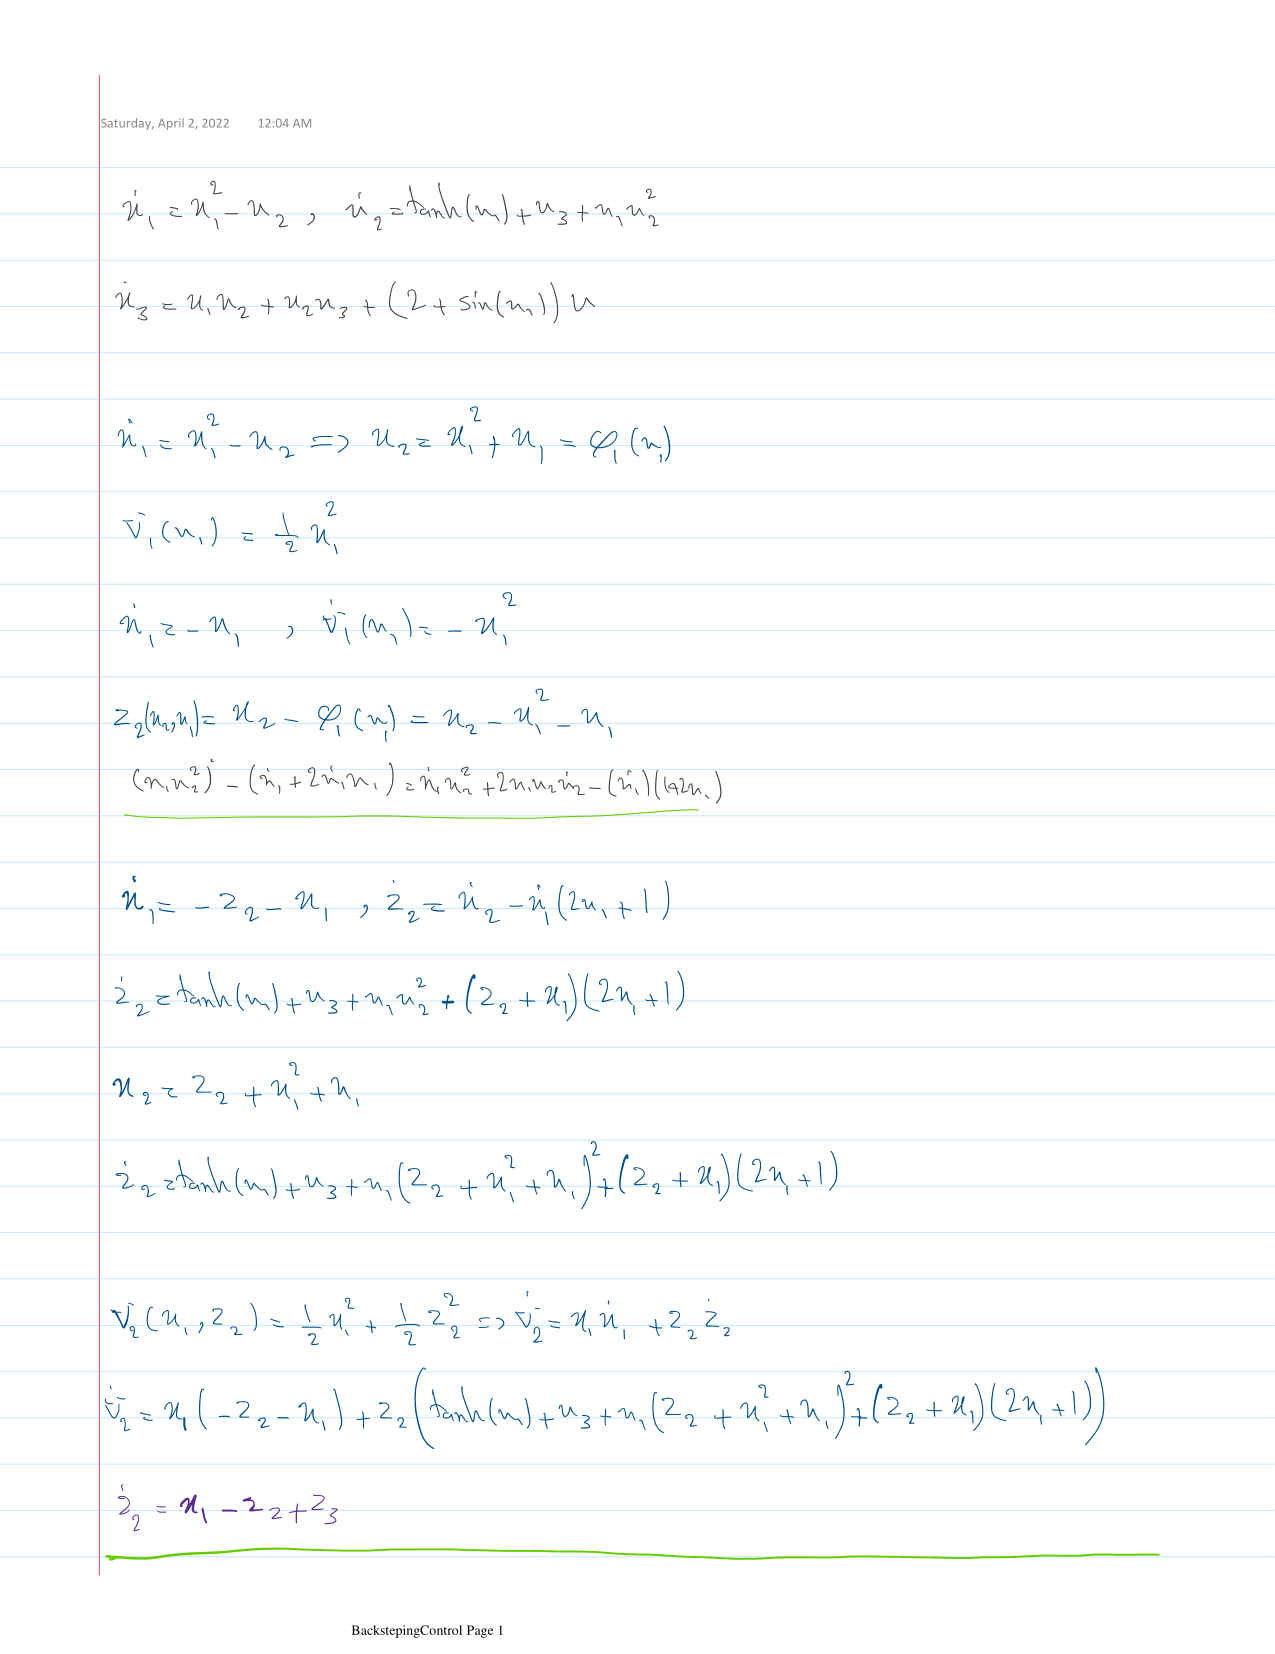 Saturday, April 2, 2022 12:04 AM
ẋ₁ = x₁² - x₂ , ẋ₂ = tanh(x₁) + x₃ + x₁x₂²
ẋ₃ = x₁x₂ + x₂x₃ + (2 + sin(x₁)) u
ẋ₁ = x₁² - x₂ => x₂ = x₁² + x₁ = φ₁(x₁)
V₁(x₁) = 1/2 x₁²
ẋ₁ = -x₁ , V̇₁(x₁) = -x₁²
z₂(x₂,x₁) = x₂ - φ₁(x₁) = x₂ - x₁² - x₁
(x₁x₂²)˙ - (ẋ₁ + 2ẋ₁x₁) = ẋ₁x₂² + 2x₁x₂ẋ₂ - (ẋ₁)(1+2x₁)
ẋ₁ = -z₂ - x₁ , ż₂ = ẋ₂ - ẋ₁(2x₁ + 1)
ż₂ = tanh(x₁) + x₃ + x₁x₂² + (z₂ + x₁)(2x₁ + 1)
x₂ = z₂ + x₁² + x₁
ż₂ = tanh(x₁) + x₃ + x₁(z₂ + x₁² + x₁)² + (z₂ + x₁)(2x₁ + 1)
V₂(x₁, z₂) = 1/2 x₁² + 1/2 z₂² => V̇₂ = x₁ẋ₁ + z₂ż₂
V̇₂ = x₁(-z₂ - x₁) + z₂(tanh(x₁) + x₃ + x₁(z₂ + x₁² + x₁)² + (z₂ + x₁)(2x₁ + 1))
ż₂ = x₁ - z₂ + z₃
BackstepingControl Page 1